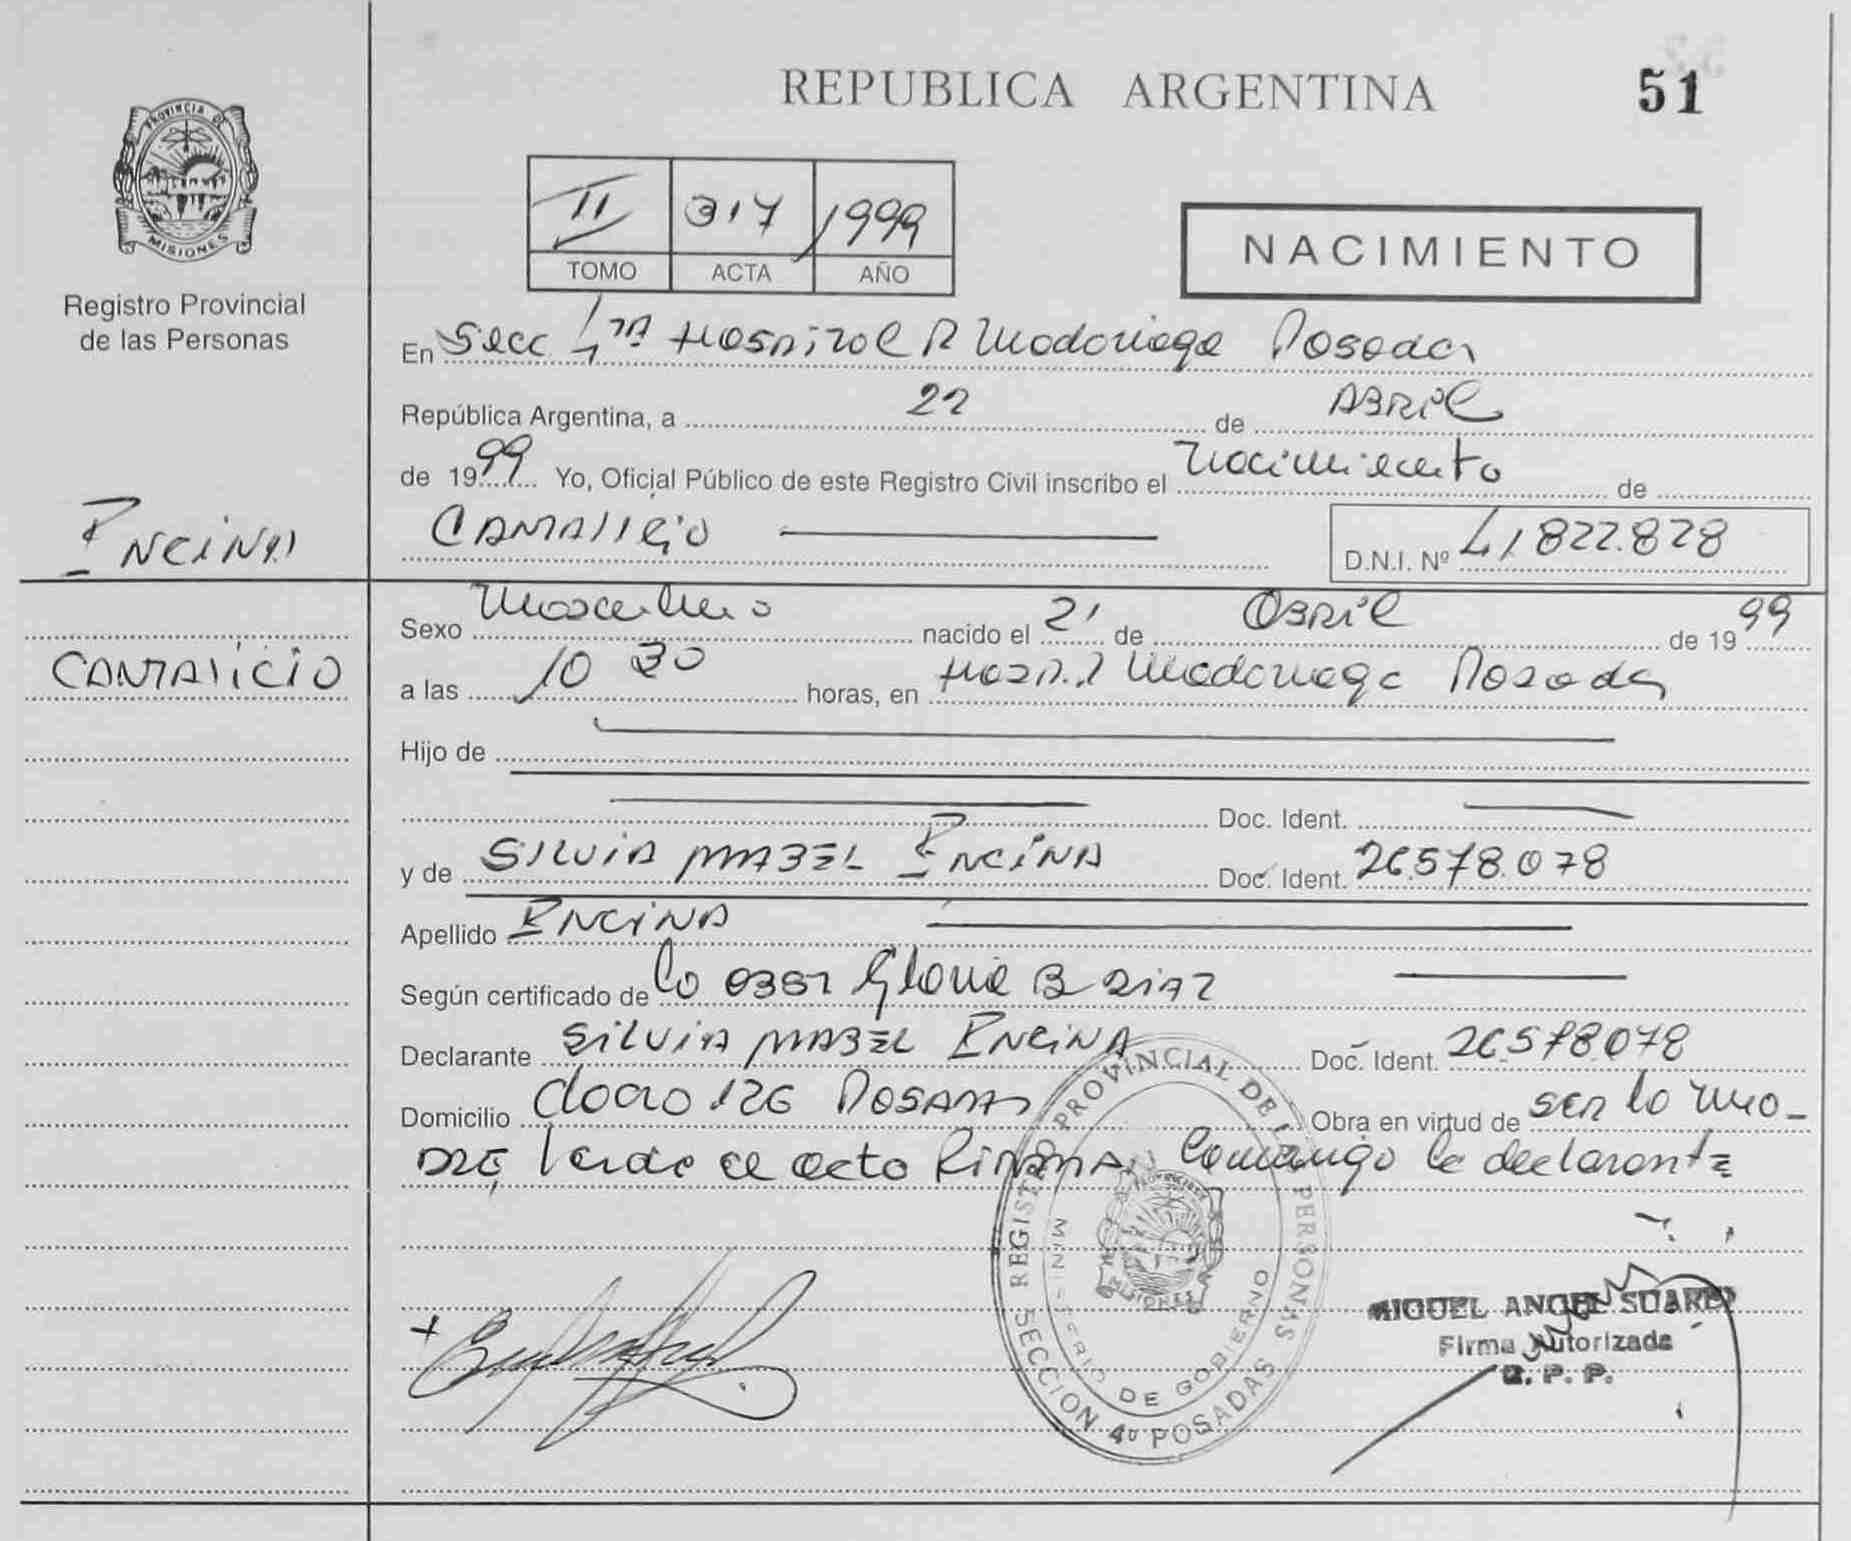 REPUBLICA ARGENTINA
51
PROVINCIA DE
MISIONES
Registro Provincial
de las Personas
II 317 1999
TOMO ACTA AÑO
NACIMIENTO
En Secc 4ta Hospital R Madariaga Posadas
República Argentina, a 22 de ABRIL
de 1999 Yo, Oficial Público de este Registro Civil inscribo el nacimiento de
ENCINA
CANTALICIO
D.N.I. Nº 41.822.828
Sexo Masculino nacido el 21 de ABRIL de 1999
CANTALICIO
a las 10 30 horas, en Hospil Madariaga Posadas
Hijo de
Doc. Ident.
y de SILVIA MABEL ENCINA Doc. Ident. 26.578.078
Apellido ENCINA
Según certificado de la OBST Gloria B DIAZ
Declarante SILVIA MABEL ENCINA Doc. Ident. 26.578.078
Domicilio 126 POSADAS Obra en virtud de ser la ma-
DRE el acto FIRMA conmigo la declarante
REGISTRO PROVINCIAL DE PERSONAS
MINISTERIO DE GOBIERNO
MISIONES
SECCION 4ª POSADAS
MIGUEL ANGEL SUAREZ
Firma Autorizada
R. P. P.